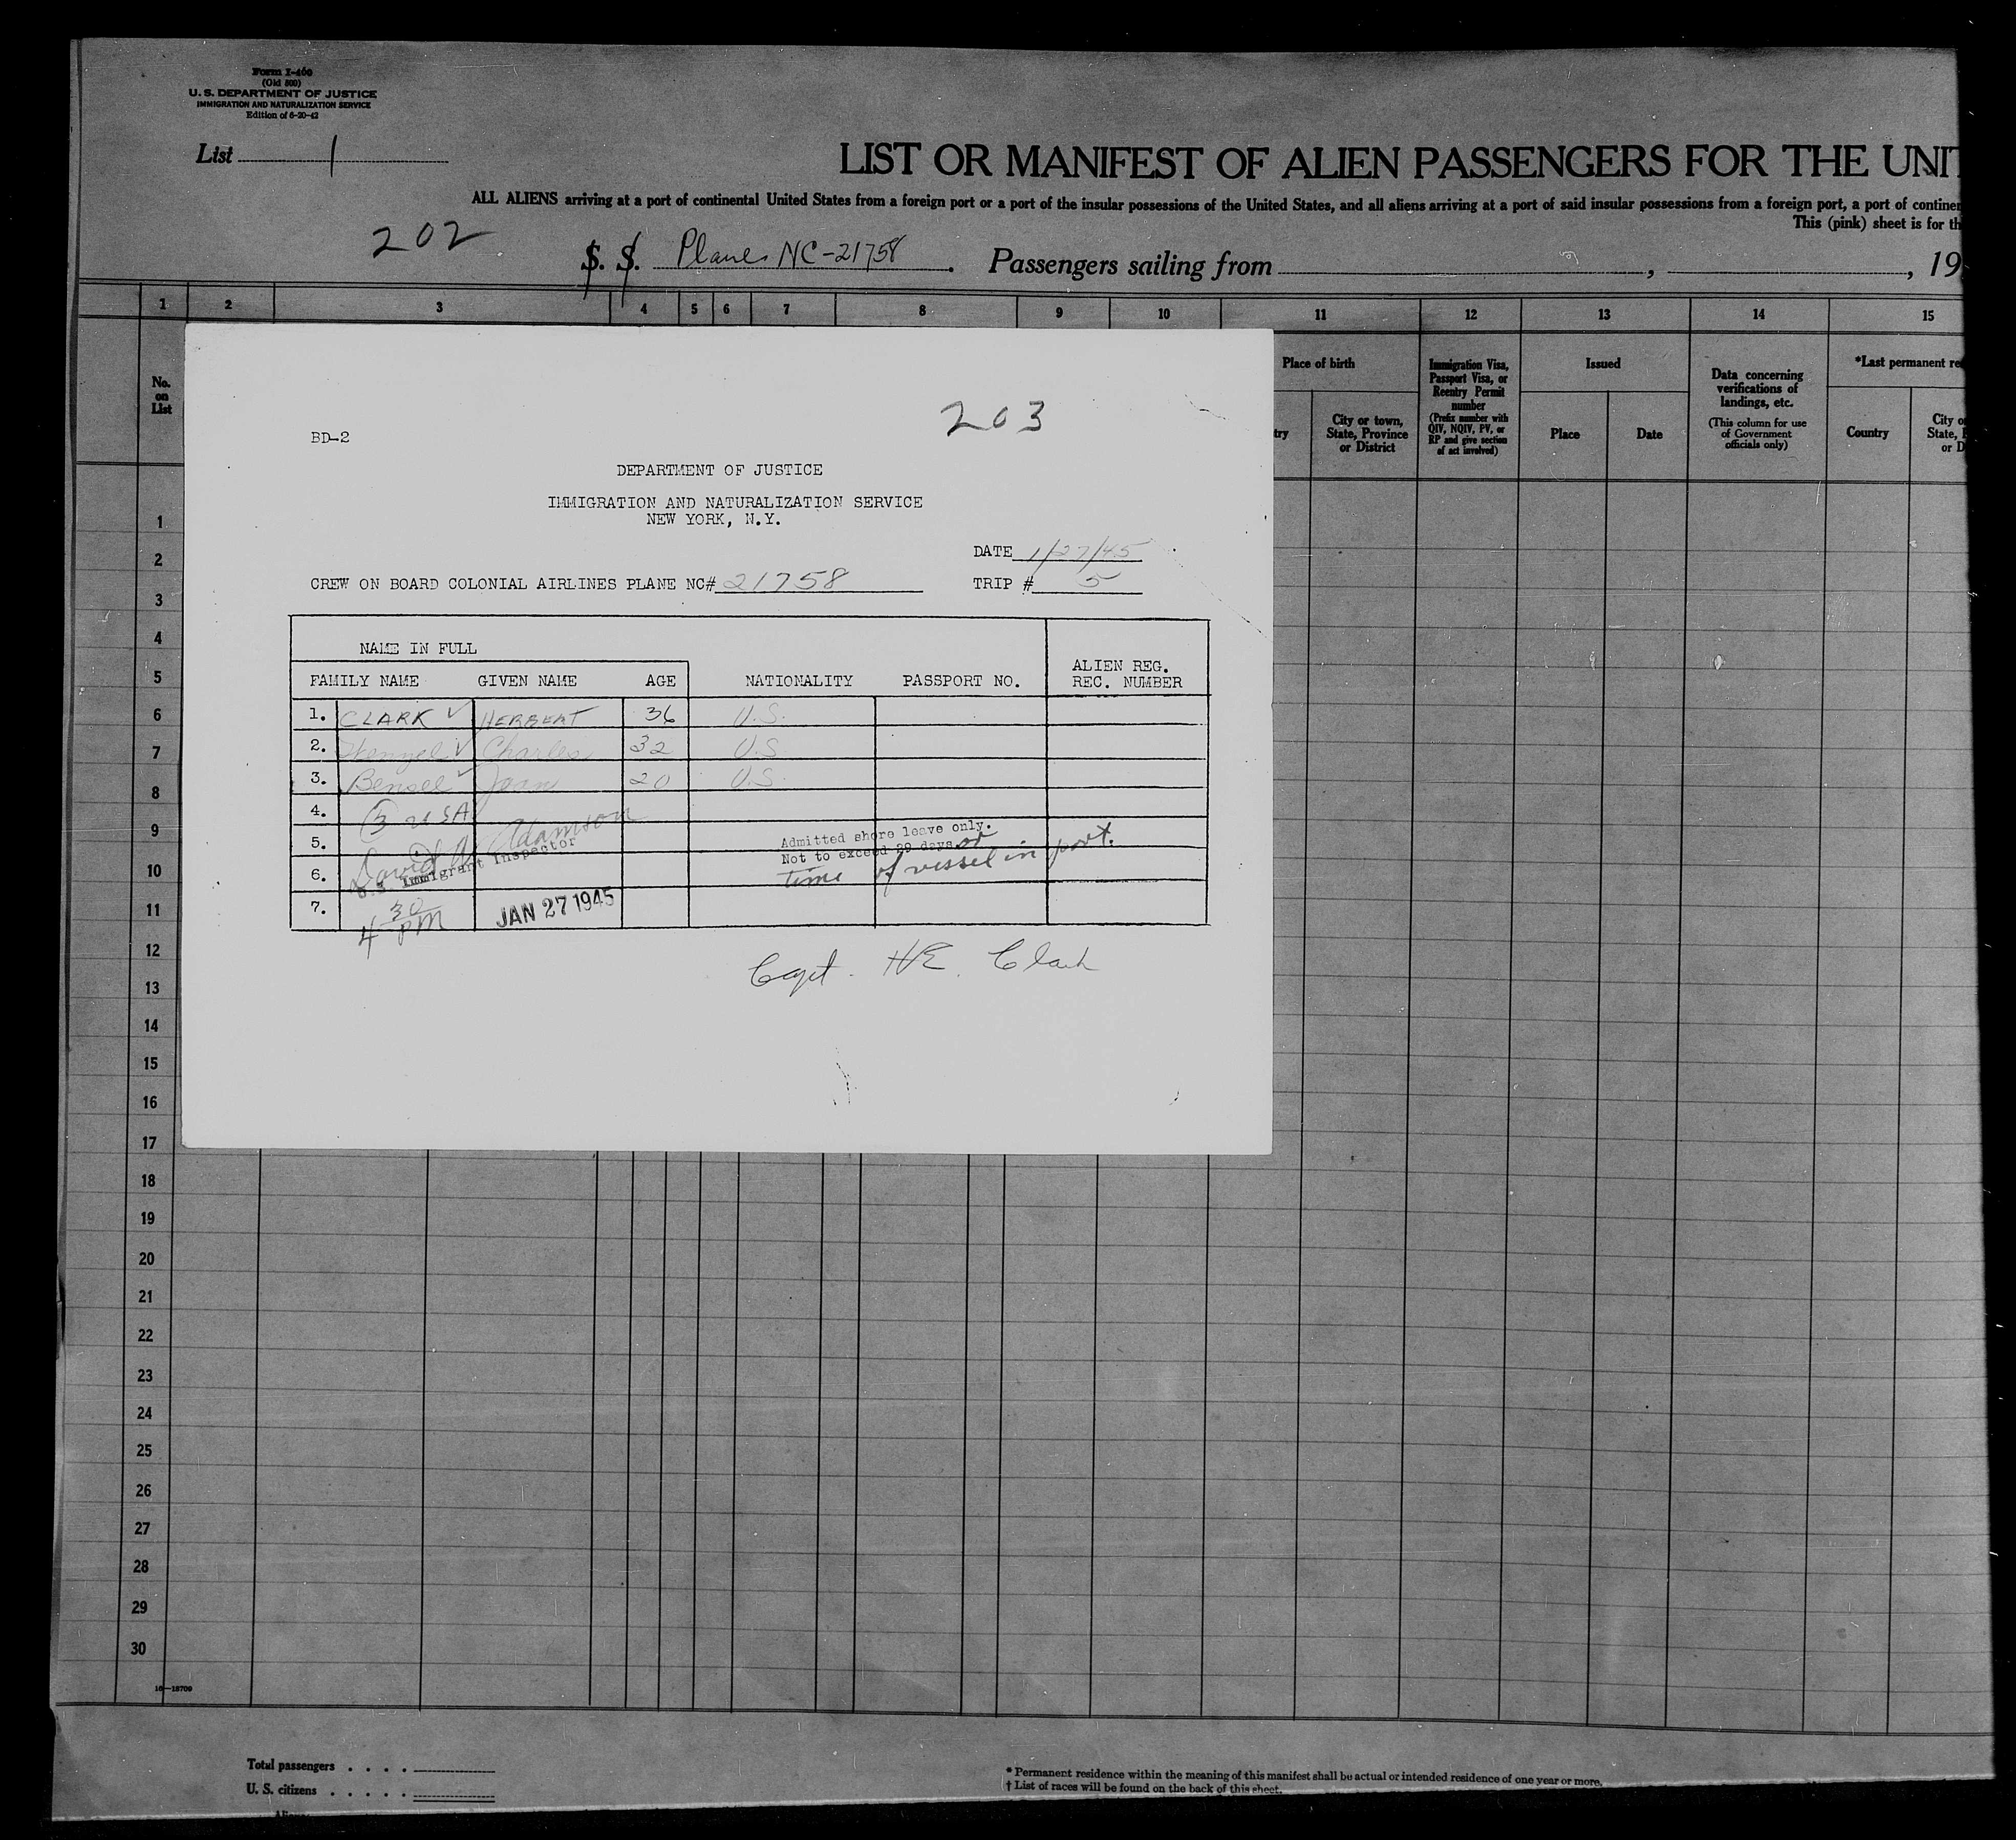 Form I-400
(Old 500)
U. S. DEPARTMENT OF JUSTICE
IMMIGRATION AND NATURALIZATION SERVICE
Edition of 6-20-42
List 1
LIST OR MANIFEST OF ALIEN PASSENGERS FOR THE UNIT
ALL ALIENS arriving at a port of continental United States from a foreign port or a port of the insular possessions of the United States, and all aliens arriving at a port of said insular possessions from a foreign port, a port of continen
This (pink) sheet is for th
202
S. S. Plane NC-21758. Passengers sailing from , , 19
1 2 3 4 5 6 7 8 9 10 11 12 13 14 15
No. on List
Place of birth
try
City or town, State, Province or District
Immigration Visa, Passport Visa, or Reentry Permit number
(Prefix number with QIV, NQIV, PV, or RP and give section of act involved)
Issued
Place
Date
Data concerning verifications of landings, etc.
(This column for use of Government officials only)
*Last permanent re
Country
City o
State, P
or D
203
BD-2
DEPARTMENT OF JUSTICE
IMMIGRATION AND NATURALIZATION SERVICE
NEW YORK, N.Y.
DATE 1/27/45
CREW ON BOARD COLONIAL AIRLINES PLANE NC# 21758 TRIP # 5
NAME IN FULL
FAMILY NAME GIVEN NAME AGE NATIONALITY PASSPORT NO. ALIEN REG. REC. NUMBER
1. CLARK ✓ HERBERT 36 U.S.
2. ✓ Charles 32 U.S.
3. Bensel ✓ Joan 20 U.S.
4. (3 USA)
5. David Adamson
U.S. Immigrant Inspector
Admitted shore leave only.
Not to exceed 29 days or
6. time of vessel in port.
7. 4 30 PM JAN 27 1945
Capt. HE. Clark
1
2
3
4
5
6
7
8
9
10
11
12
13
14
15
16
17
18
19
20
21
22
23
24
25
26
27
28
29
30
16—18709
Total passengers . . . .
U. S. citizens . . . . .
* Permanent residence within the meaning of this manifest shall be actual or intended residence of one year or more.
† List of races will be found on the back of this sheet.